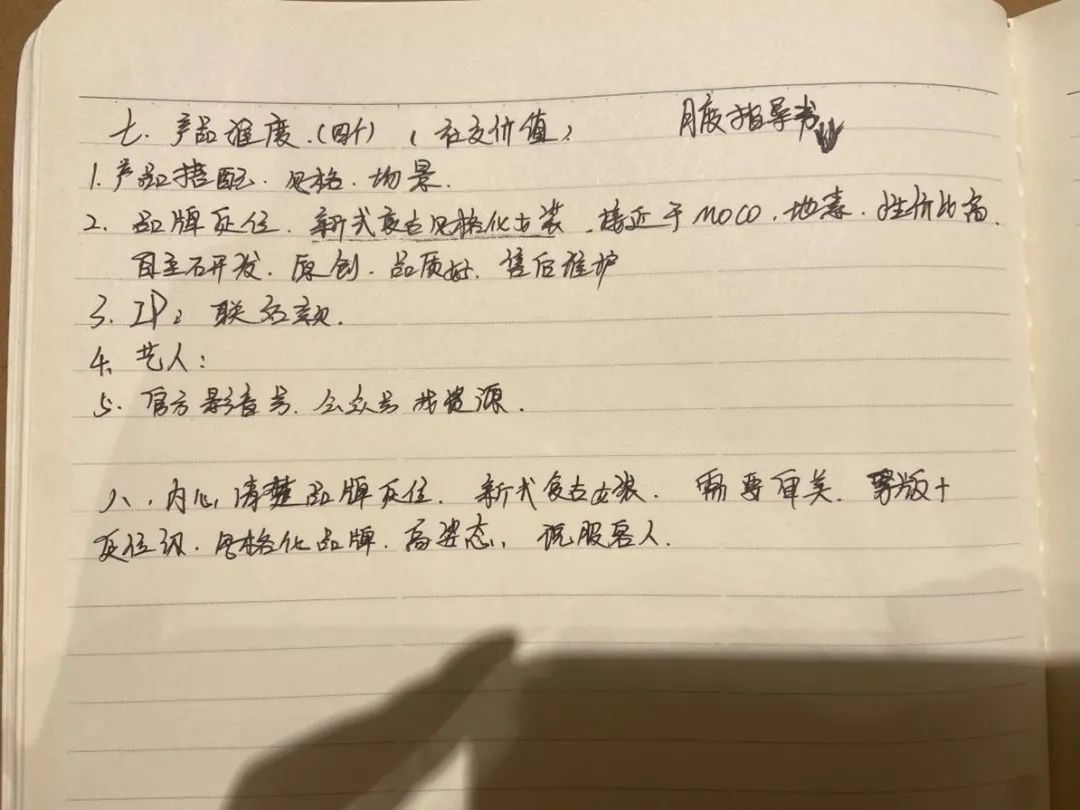 七、产品维度.(四个)(社交价值) 月度指导书
1.产品搭配.风格.场景.
2. 品牌定位.新式复古风格化女装.接近于MOCO.地素.性价比高.
自主研开发.原创.品质好.售后维护
3. IP: 联名款.
4、艺人:
5. 官方影音号.公众号 找资源.
八、内心清楚品牌定位.新式复古女装.需要审美.版+
定位识.风格化品牌.高姿态、说服客人.